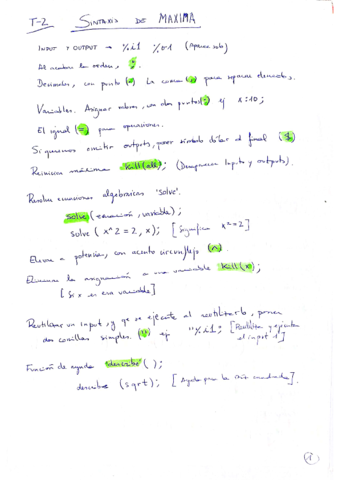 T-2 SINTAXIS DE MAXIMA
INPUT Y OUTPUT → %i1 %o1 (Aparece solo)
Al acabar la orden, ;
Decimales, con punto (.) La coma (,) para separar elementos.
Variables. Asignar valores, con dos puntos (:) y x:10;
El igual (=) para operaciones.
Si queremos omitir outputs, poner símbolo dólar al final ($)
Reiniciar máxima kill(all); (Desaparecen inputs y outputs).
Resolver ecuaciones algebraicas "solve".
solve (ecuación, variable);
solve (x^2=2, x); [Significa x²=2]
Elevar a potencia, con acento circunflejo (^)
Eliminar la asignación a una variable kill(x);
[Si x es esa variable]
Reutilizar un input, y que se ejecute al reutilizarlo, poner
dos comillas simples ('') ej ''%i1; [Reutiliza y ejecuta
el input 1]
Función de ayuda describe ( );
describe (sqrt); [Ayuda para la raíz cuadrada].
1